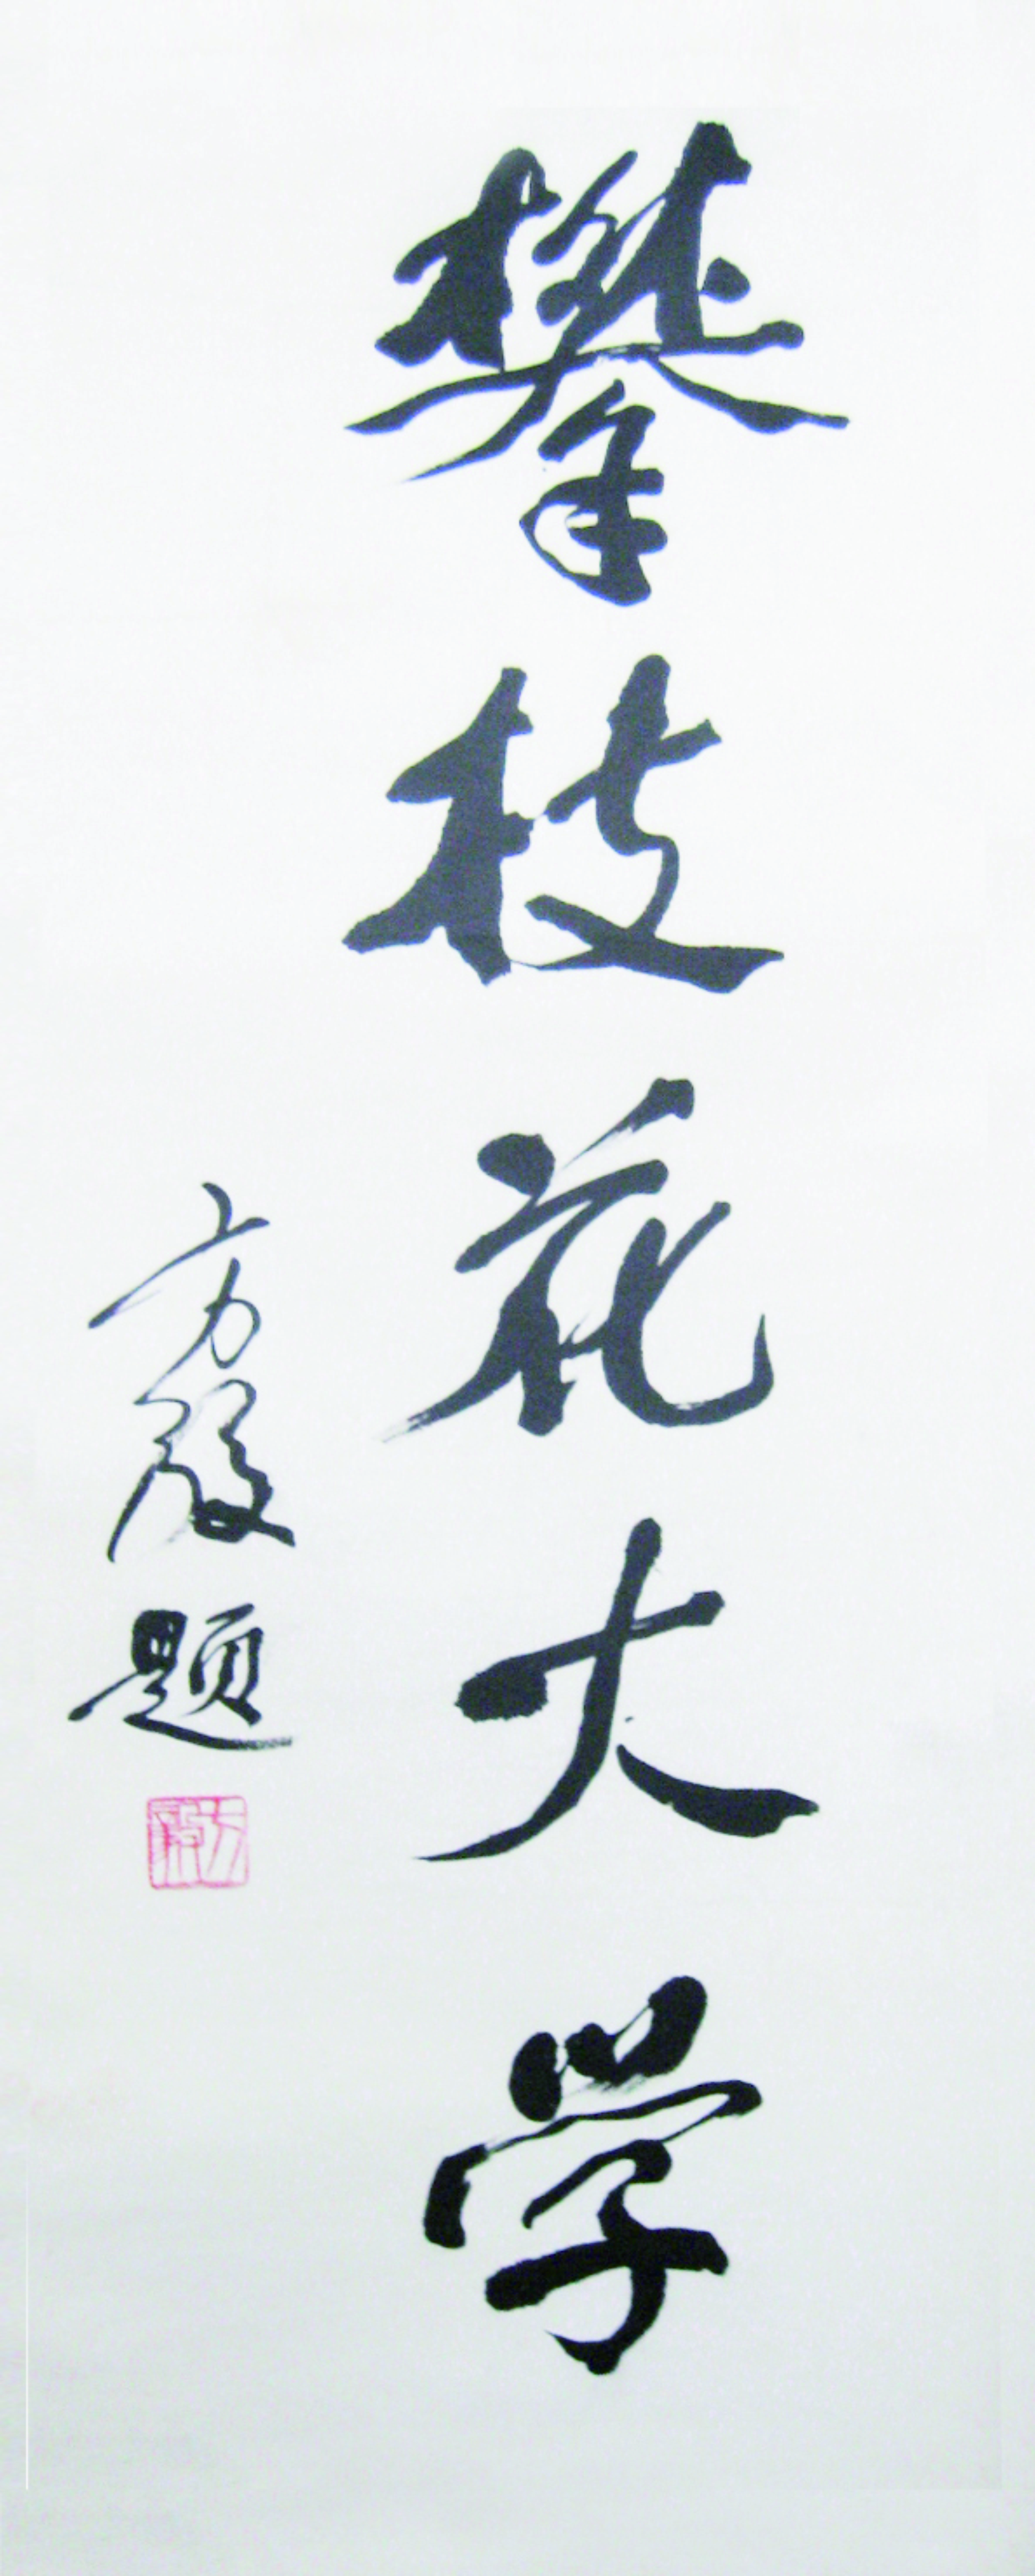 攀枝花大学
方毅题